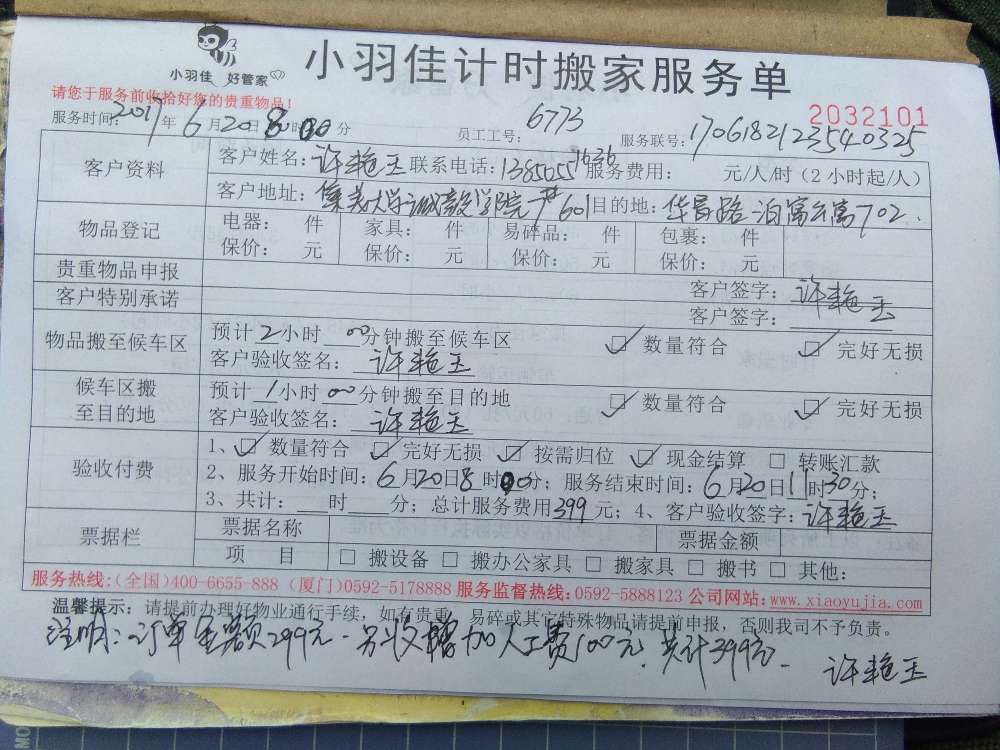 小羽佳 好管家
小羽佳计时搬家服务单
请您于服务前收拾好您的贵重物品！
2032101
服务时间：2017年6月20日8时00分 员工工号：6773 服务联号：1706182123540325
客户资料 客户姓名：许艳玉 联系电话： 服务费用： 元/人/时（2小时起/人）
客户地址：集美大学诚毅学院 601 目的地：华昌路泊富云寓702.
物品登记 电器： 件 家具： 件 易碎品： 件 包裹： 件
保价： 元 保价： 元 保价： 元 保价： 元
贵重物品申报 客户签字：许艳玉
客户特别承诺 客户签字：
物品搬至候车区 预计2小时00分钟搬至候车区 ☑ 数量符合 ☑ 完好无损
客户验收签名：许艳玉
候车区搬至目的地 预计1小时00分钟搬至目的地 ☑ 数量符合 ☑ 完好无损
客户验收签名：许艳玉
验收付费 1、☑ 数量符合 ☑ 完好无损 ☑ 按需归位 ☑ 现金结算 □ 转账汇款
2、服务开始时间：6月20日8时00分；服务结束时间：6月20日11时30分；
3、共计： 时 分；总计服务费用399元；4、客户验收签字：许艳玉
票据栏 票据名称 票据金额
项 目 □ 搬设备 □ 搬办公家具 □ 搬家具 □ 搬书 □ 其他：
服务热线：(全国)400-6655-888 (厦门)0592-5178888 服务监督热线：0592-5888123 公司网站：www.xiaoyujia.com
温馨提示：请提前办理好物业通行手续，如有贵重、易碎或其它特殊物品请提前申报，否则我司不予负责。
注明：订单金额299元.另收增加人工费100元.共计399元.
许艳玉